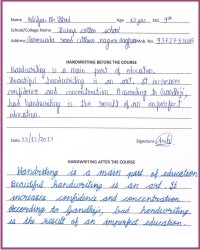 Name Age 12 yrs Sec. 7th
School/College Name Rising cotton school
Address road Mob. No.
HANDWRITING BEFORE THE COURSE
Handwriting is a main part of education.
Beautiful handwriting is an art. It increases
confidence and concentration. According to Gandhiji,
bad handwriting is the result of an imperfect
education.
Date Signature
HANDWRITING AFTER THE COURSE
Handwriting is a main part of education
Beautiful handwriting is an art. It
increases confidence and concentration
According to Gandhiji, bad handwriting
is the result of an imperfect education.